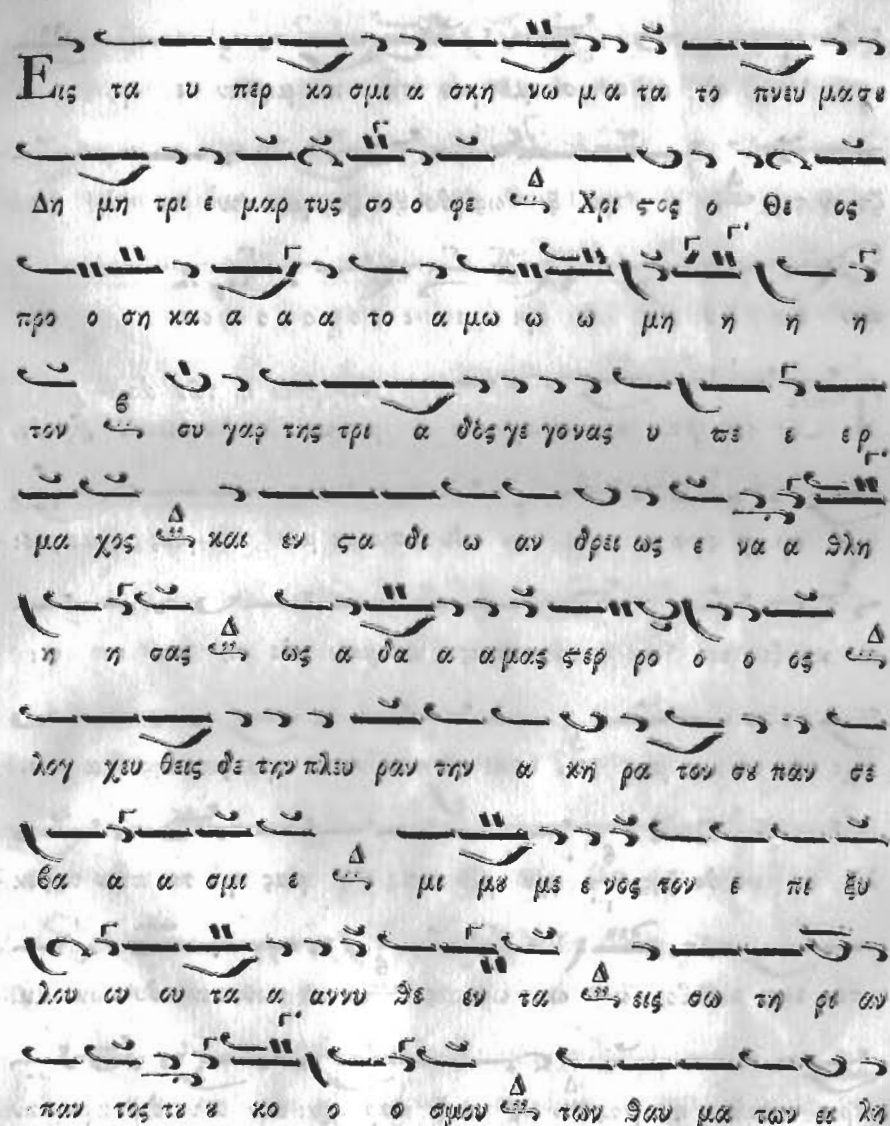 Εις τα υ περ κο σμι α σκη νω μα τα το πνευ μα σȣ
Δη μη τρι ε μαρ τυς σο ο φε Δ Χρι ϛος ο Θε ος
προ ο ση κα α α α το α μω ω ω μη η η η
τον ϐ συ γαρ της τρι α δος γε γονας υ πε ε ερ
μα χος Δ και εν ϛα δι ω αν δρει ως ε να α θλη
η η σας Δ ως α δα α α μας ϛερ ρο ο ο ος Δ
λογ χευ θεις δε την πλευ ραν την α κη ρα τον σȣ παν σε
ϐα α α σμι ε Δ μι μȣ με ε νος τον ε πι ξυ
λου ου ου τα α αννυ θε εν τα Δ εις σω τη ρι αν
παν τος τȣ ȣ κο ο ο σμου Δ των θαυ μα των ει λη